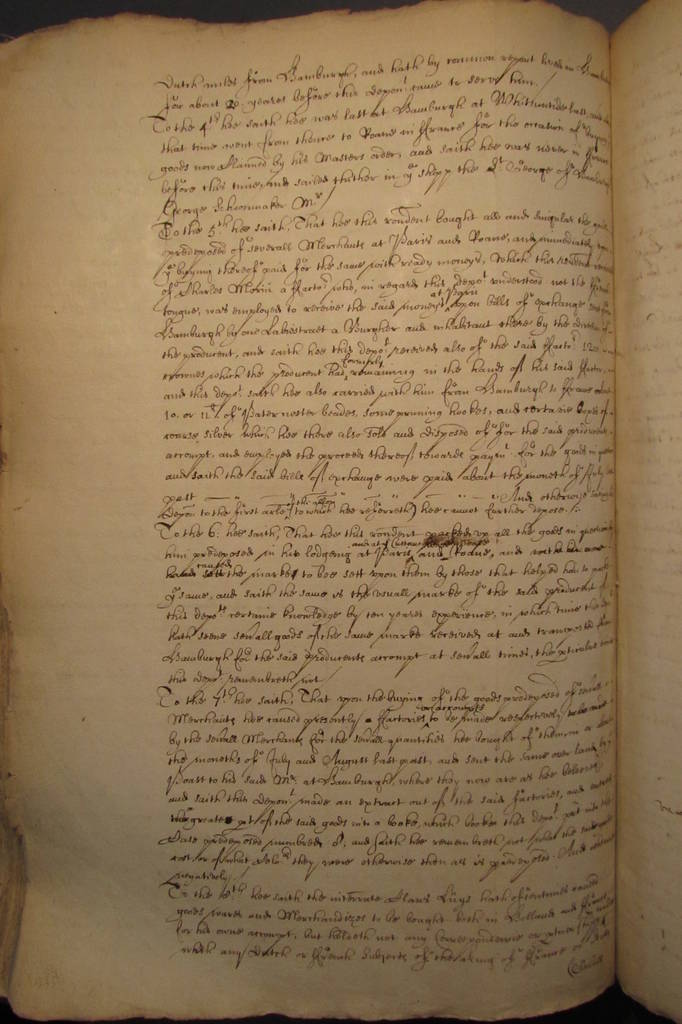 Dutch miles from Hamburgh, and hath by common report lived in
for about 20 yeares before this depont came to serve him.
To the 4th hee saith hee was last at Hamburgh at Whitsuntide last
that time went from thence to Roane in ffrance for the occasion of buying
goods now claimed by his Masters order, and saith hee was never in ffrance
before this time, and sailed thither in ye shipp the St George of Hamburgh
George Schoonmaker Mr
To the 5th hee saith, That hee this rendent bought all and singular the goods
predeposed of severall Merchants at Paris and Roane, and immediately upon
ye buying thereof paid for the same with ready moneys, which this rendent received
of Charles Morin a ffactor who, in regard this depot understood not the ffrench
tongue, was employed to receive the said moneys at Paris upon bills of exchange
Hamburgh by one Labistraet a Burgher and inhabitant there by the order of
the producent, and saith hee this depot received also of the said ffactor 1200
crownes which the producent had formerly remaineing in the hands of his said ffactor
and this depot saith hee also carried with him from Hamburgh to ffrance about
10. or 11 li. of Pater noster beades, some pruning hookes, and certaine of
coarse silver which hee there also sold and disposed of for the said producents
accompt, and employed the proceeds thereof towards payment for the goods in question
and saith the said bills of exchange were paid about the moneth of July last
past And otherwise saving his
depon to the first arlee of the allon (to which hee referreth) hee cannot further depose.
To the 6: hee saith, That hee this rondent packed up all the goods in question
him predeposed in his lodgeing at Paris and at ye Custome house Roane, and
caused the marke to bee sett upon them by those that helped him to pack
ye same, and saith the same is the usuall marke of the said producent of
this depots certaine knowledge by ten yeares experience, in which time
hath seene severall goods of the same marke received at and transported from
Hamburgh for the said producents accompt at severall times, the pticulars
this depot remembreth not
To the 7th hee saith, That upon the buying of the goods predeposed of severall
Merchants hee caused presently ffactories or accompts to be made respectively
by the severall Merchants for the severall quantities hee bought of them in
the moneths of July and August last past, and sent the same over land by
Poast to his said Mr at Hamburgh, where they now are as hee beleeveth
and saith this depont made an extract out of the said ffactories, and entred
the greatest pt of the said goods into a booke, which booke this depot put into the
Case predeposed numbred 8. and saith hee remembreth not what the said goods
cost or of what value they were otherwise then as is predeposed. And otherwise
negatively
To the 8th hee saith the interrate Hans Luys hath oftentimes caused
goods wares and Merchandizes to be bought both in Holland and ffrance
for his owne accompt, but holdeth not any Correspondence or ptner
with any Dutch or ffrench Subjects of the king of ffrance or